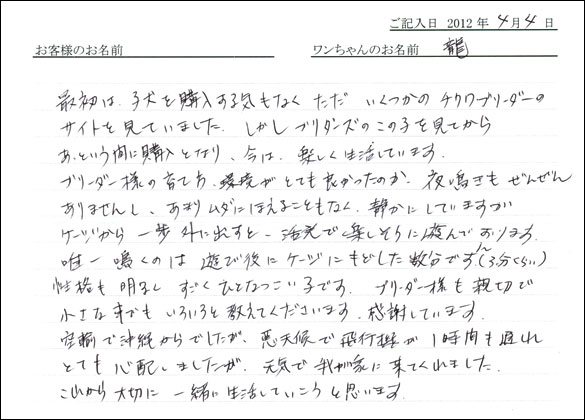 ご記入日 2012年 4月 4日
お客様のお名前 ワンちゃんのお名前 龍
最初は、子犬を購入する気もなく ただ いくつかのチワワブリーダーの
サイトを見ていました。しかしブリダンズのこの子を見てから
あっという間に購入となり、今は、楽しく生活しています。
ブリーダー様の育て方、環境がとても良かったのか、夜鳴きもぜんぜん
ありませんし、あまりムダにほえることもなく、静かにしていますが
ケージから一歩外に出すと、活発で楽しそうに遊んでおります。
唯一鳴くのは遊び後にケージにもどした数分です(3分くらい)
性格も明るく すごくひとなつこい子です。ブリーダー様も親切で
小さな事でもいろいろと教えてくださいます。感謝しています。
空輸で沖縄からでしたが、悪天候で飛行機が1時間も遅れ
とても心配しましたが、元気で我が家に来てくれました。
これから大切に一緒に生活していこうと思います。